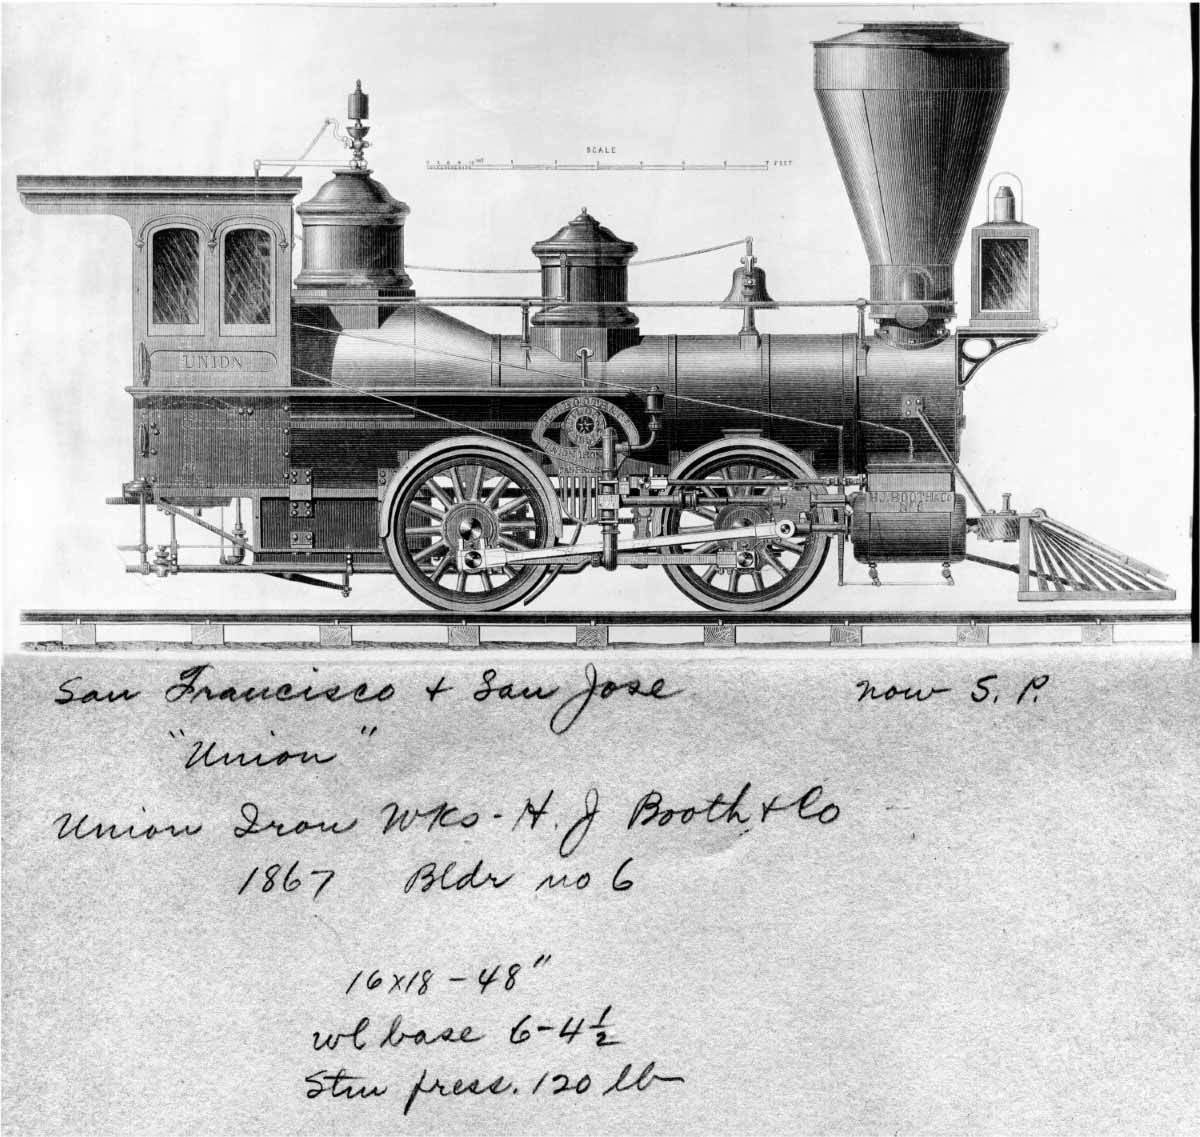 SCALE
FEET
UNION
H.J. BOOTH & Co
UNION IRON
H.J. BOOTH & Co
No 6
San Francisco + San Jose now S. P.
"Union"
Union Iron Wks - H. J Booth + Co
1867 Bldr no 6
16x18 - 48"
wl base 6-4½
Stm press. 120 lb